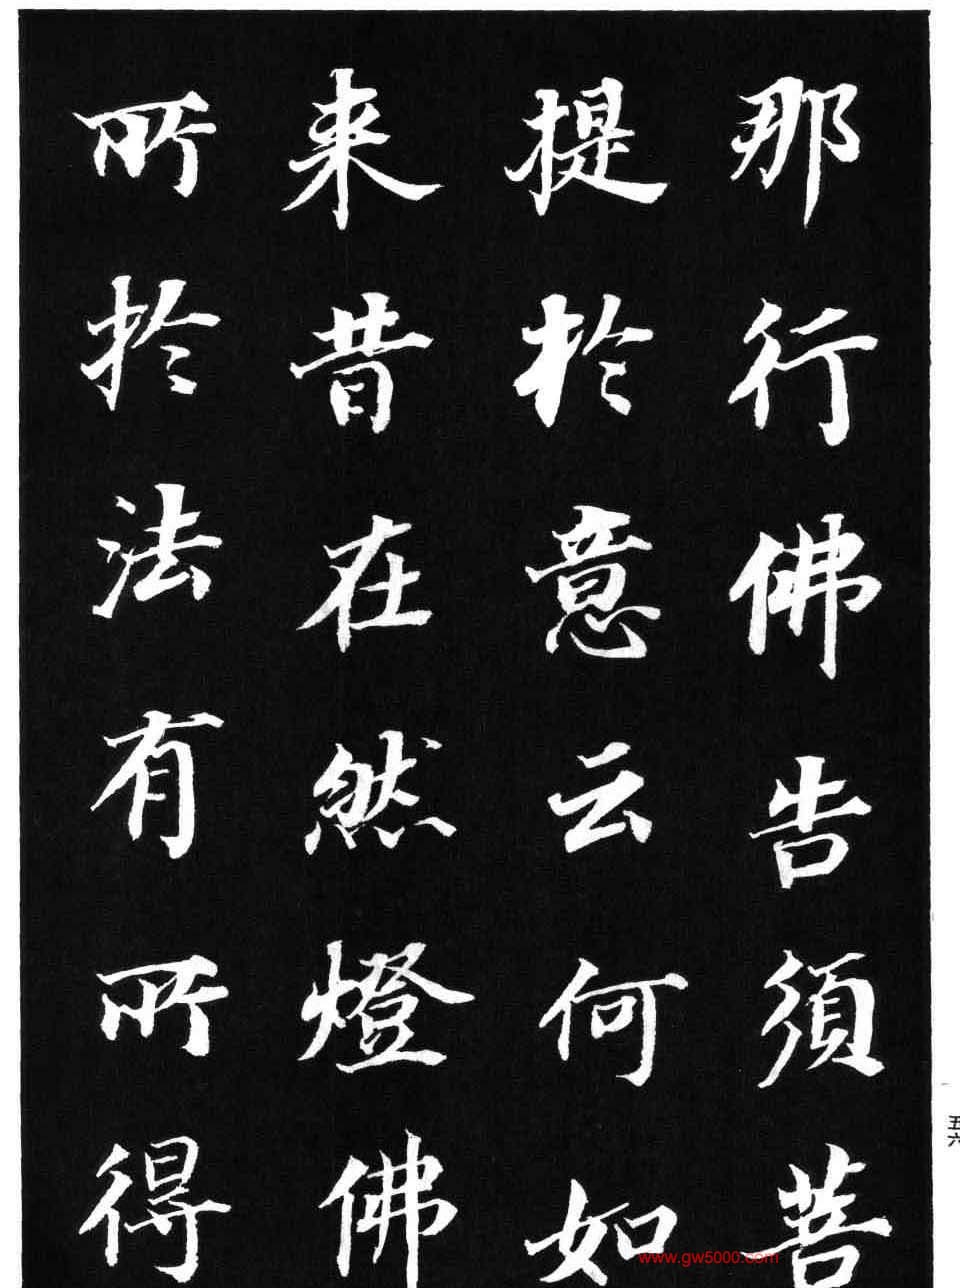 那行佛告須菩
提於意云何如
来昔在然燈佛
所於法有所得
五六
www.gw5000.com